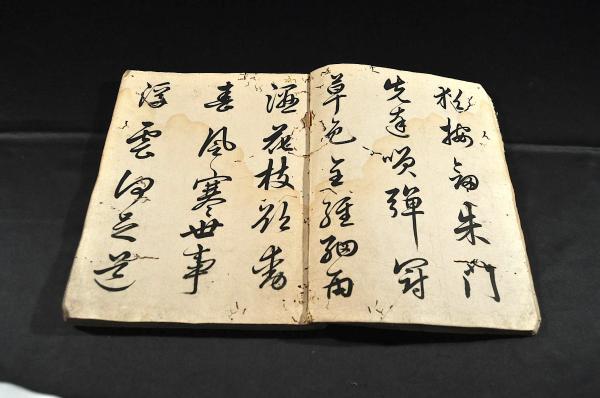 猶按劍朱門
先達咲彈冠
草色全經細雨
濕花枝欲動
春風寒世事
浮雲何足道